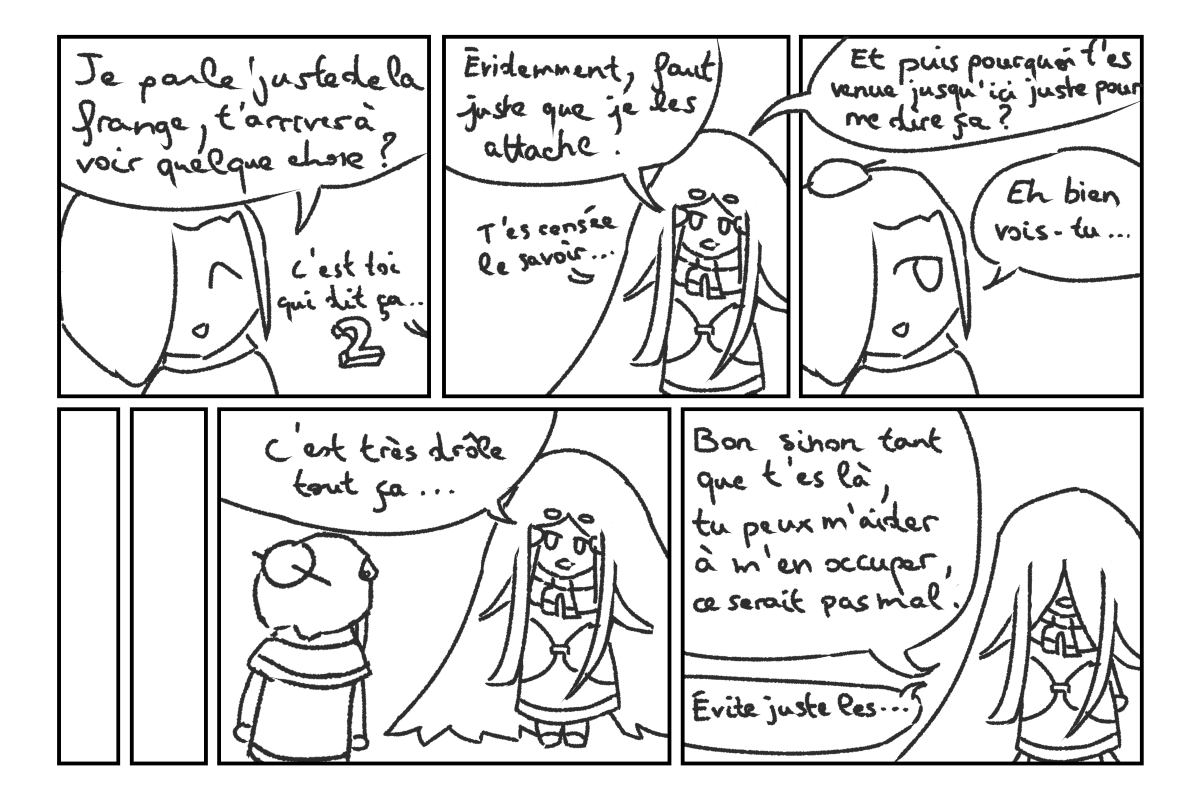 Je parle juste de la
frange, t'arrives à
voir quelque chose ?
C'est toi
qui dit ça...
2
Évidemment, faut
juste que je les
attache.
T'es censée
le savoir...
Et puis pourquoi t'es
venue jusqu'ici juste pour
me dire ça ?
Eh bien
vois-tu...
C'est très drôle
tout ça ...
Bon sinon tant
que t'es là,
tu peux m'aider
à m'en occuper,
ce serait pas mal.
Évite juste les...